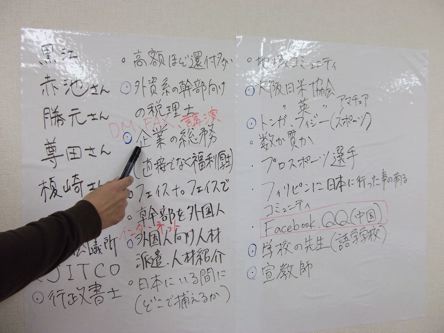 黒江
赤池さん
勝元さん
尊田さん
榎崎さん
議所
JITCO
行政書士
・高額ほど還付
外資系の幹部向け
の税理士
DM FAX 講演
企業の総務
でなく福利
・フェイス to フェイスで
幹部を外国人
外国人向け人材
派遣・人材紹介
・日本にいる間に
(どこで捕えるか)
・地域コミュニティ
大阪日米協会
〃 英 〃 アマチュア
トンガ、フィジー(スポーツ)
・数か質か
・プロスポーツ選手
・フィリピンに日本に行った事の有る
コミュニティ
Facebook QQ(中国)
学校の先生(語学校)
宣教師